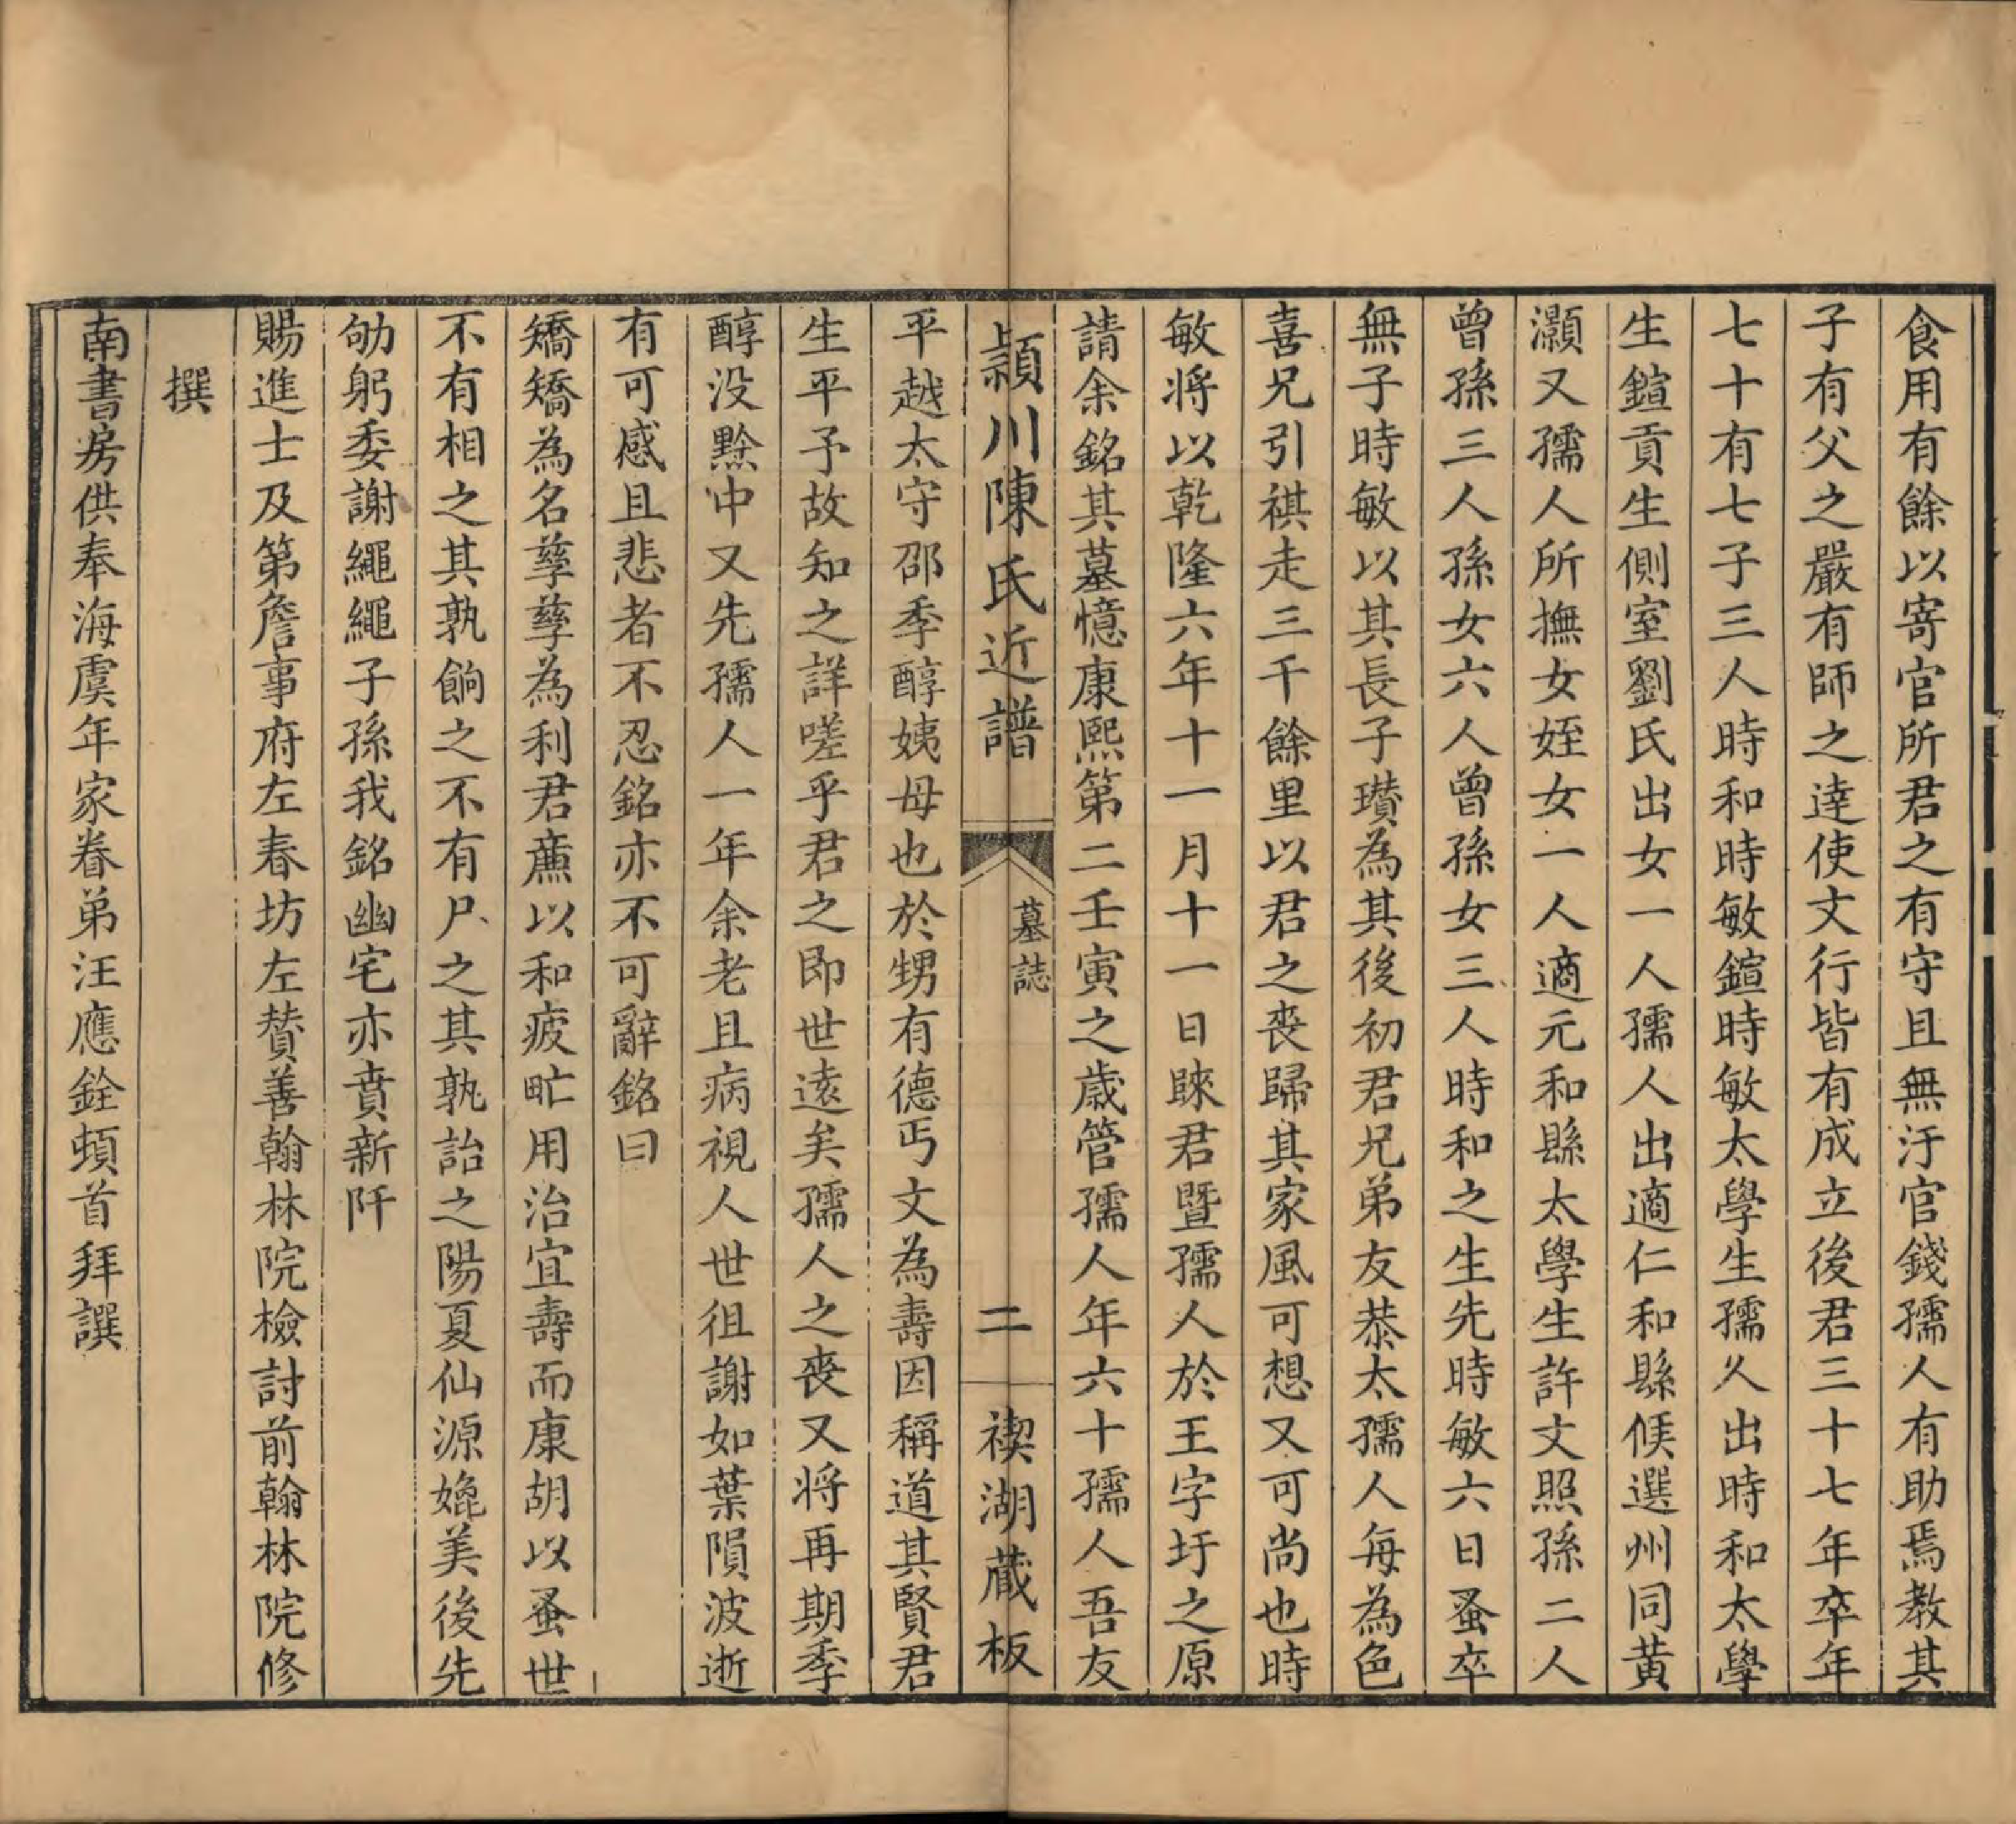 食用有餘以寄官所君之有守且無汙官錢孺人有助焉教其
子有父之嚴有師之達使文行皆有成立後君三十七年卒年
七十有七子三人時和時敏鎧時敏太學生孺人出時和太學
生鎧貢生側室劉氏出女一人孺人出適仁和縣候選州同黃
灝又孺人所撫女姪女一人適元和縣太學生許文照孫二人
曾孫三人孫女六人曾孫女三人時和之生先時敏六日蚤卒
無子時敏以其長子瓚為其後初君兄弟友恭太孺人每為色
喜兄引祺走三千餘里以君之喪歸其家風可想又可尚也時
敏將以乾隆六年十一月十一日睞君暨孺人於王字圩之原
請余銘其墓憶康熙第二壬寅之歲管孺人年六十孺人吾友
潁川陳氏近譜
墓誌
二
禊湖藏板
平越太守邵季醇姨母也於甥有德丐文為壽因稱道其賢君
生平予故知之詳嗟乎君之即世遠矣孺人之喪又將再期季
醇没黔中又先孺人一年余老且病視人世徂謝如葉隕波逝
有可感且悲者不忍銘亦不可辭銘曰
矯矯為名孳孳為利君薦以和疲甿用治宜壽而康胡以蚤世
不有相之其孰餉之不有尸之其孰詒之陽夏仙源媲美後先
劬躬委謝繩繩子孫我銘幽宅亦賁新阡
賜進士及第詹事府左春坊左贊善翰林院檢討前翰林院修
撰
南書房供奉海虞年家眷弟汪應銓頓首拜譔